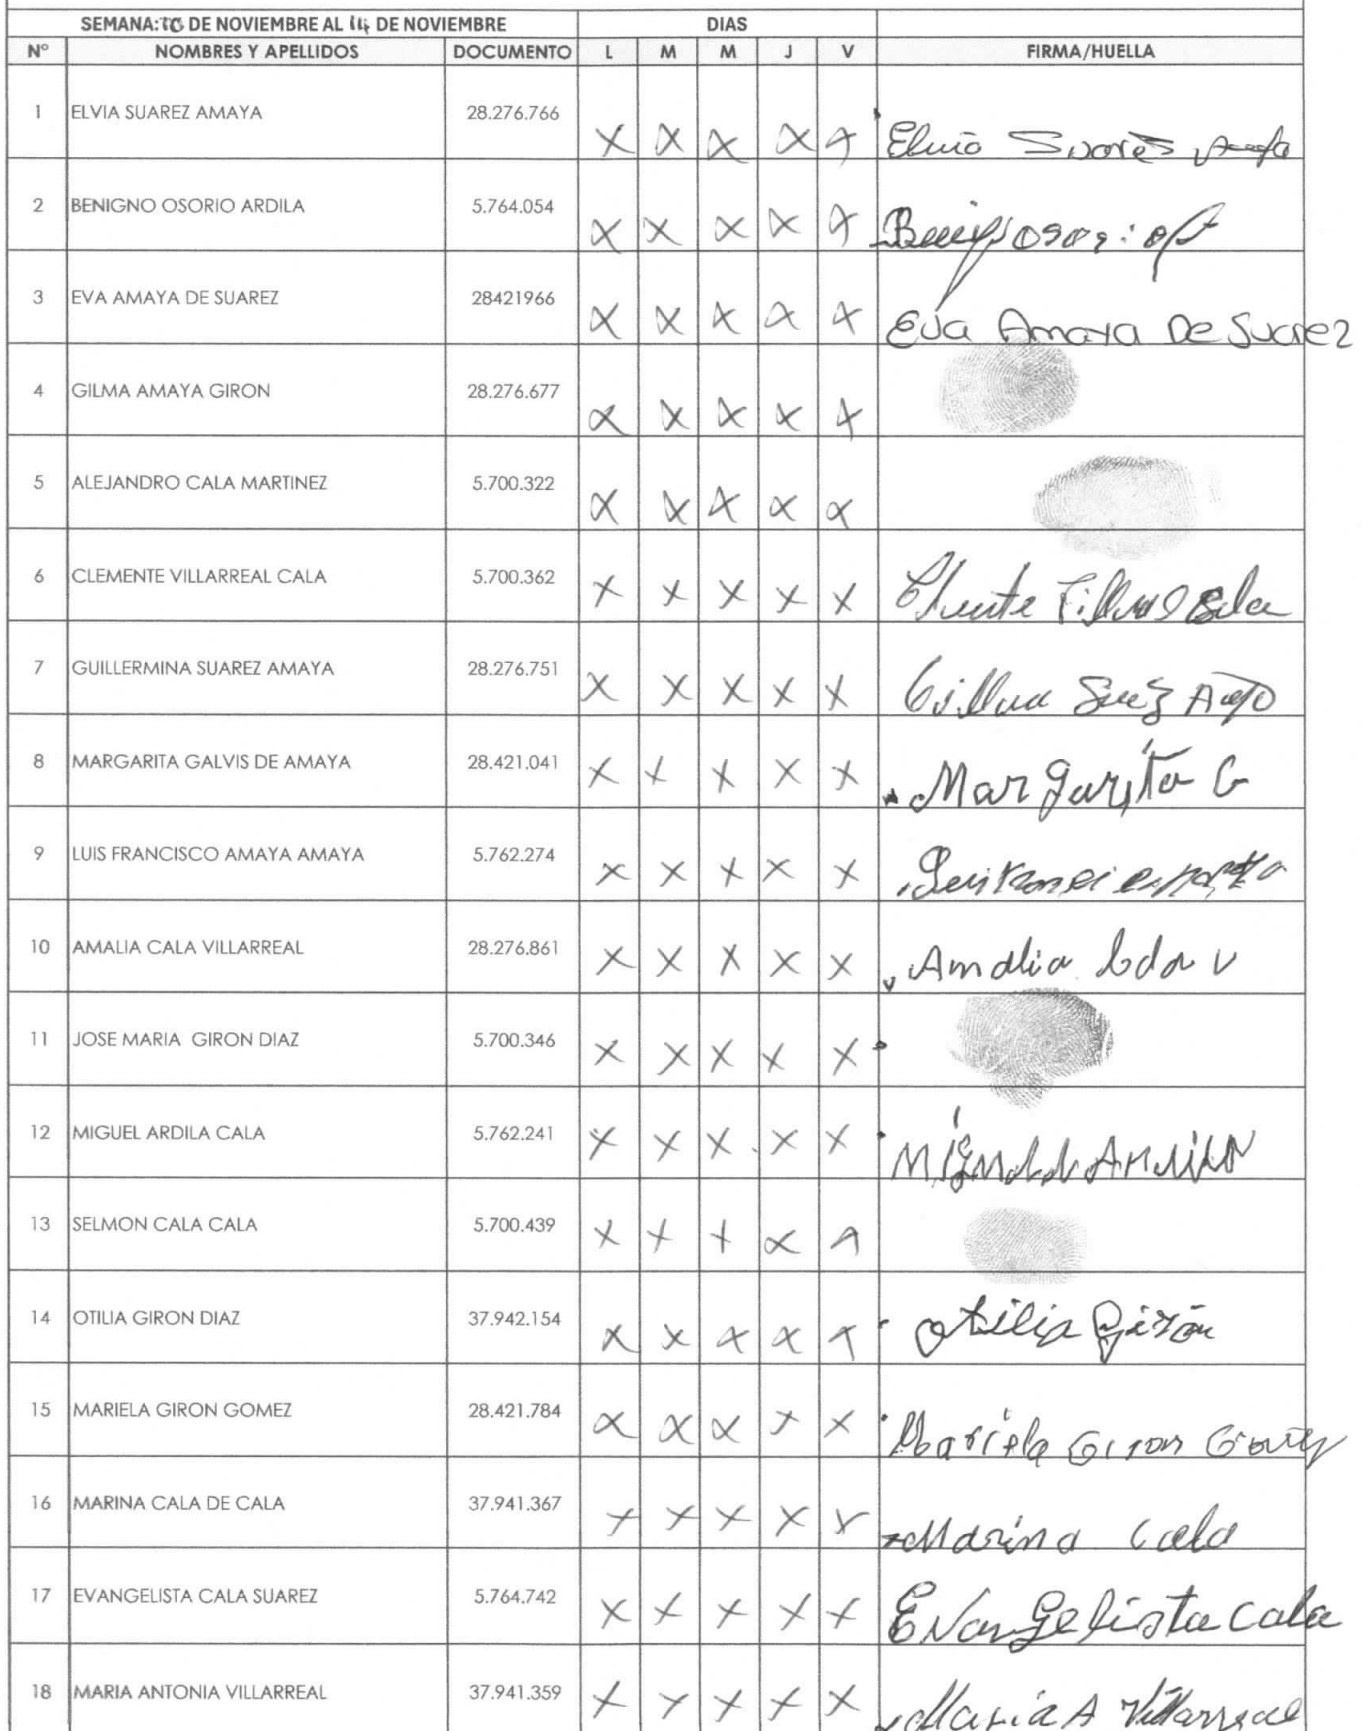 SEMANA: 10 DE NOVIEMBRE AL 14 DE NOVIEMBRE DIAS
N° NOMBRES Y APELLIDOS DOCUMENTO L M M J V FIRMA/HUELLA
1 ELVIA SUAREZ AMAYA 28.276.766 X X X X X Elvia Suares
2 BENIGNO OSORIO ARDILA 5.764.054 X X X X X
3 EVA AMAYA DE SUAREZ 28421966 X X X X X Eva Amaya De Suarez
4 GILMA AMAYA GIRON 28.276.677 X X X X X
5 ALEJANDRO CALA MARTINEZ 5.700.322 X X X X X
6 CLEMENTE VILLARREAL CALA 5.700.362 X X X X X
7 GUILLERMINA SUAREZ AMAYA 28.276.751 X X X X X
8 MARGARITA GALVIS DE AMAYA 28.421.041 X X X X X Margarita G
9 LUIS FRANCISCO AMAYA AMAYA 5.762.274 X X X X X
10 AMALIA CALA VILLARREAL 28.276.861 X X X X X Amalia Cala V
11 JOSE MARIA GIRON DIAZ 5.700.346 X X X X X
12 MIGUEL ARDILA CALA 5.762.241 X X X X X
13 SELMON CALA CALA 5.700.439 X X X X X
14 OTILIA GIRON DIAZ 37.942.154 X X X X X Otilia Girón
15 MARIELA GIRON GOMEZ 28.421.784 X X X X X Mariela Giron Gomez
16 MARINA CALA DE CALA 37.941.367 X X X X X Marina Cala
17 EVANGELISTA CALA SUAREZ 5.764.742 X X X X X Evangelista Cala
18 MARIA ANTONIA VILLARREAL 37.941.359 X X X X X Maria A Villarreal